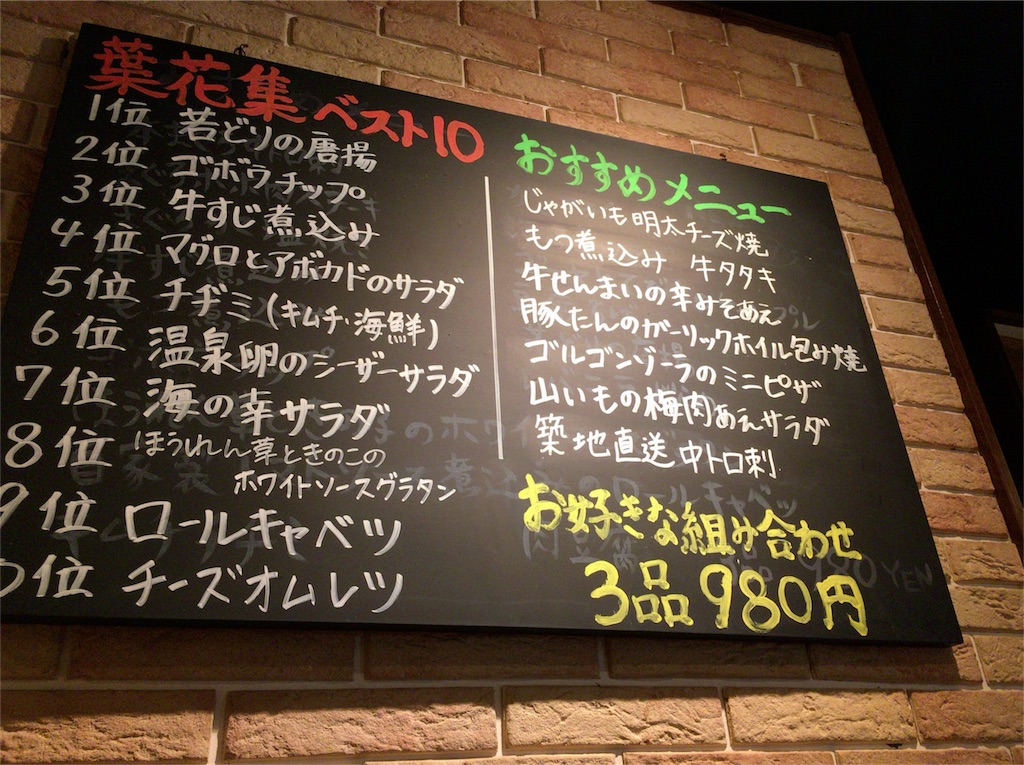 葉花集ベスト10
1位 若どりの唐揚
2位 ゴボウチップ
3位 牛すじ煮込み
4位 マグロとアボカドのサラダ
5位 チヂミ(キムチ・海鮮)
6位 温泉卵のシーザーサラダ
7位 海の幸サラダ
8位 ほうれん草ときのこの
ホワイトソースグラタン
9位 ロールキャベツ
0位 チーズオムレツ
おすすめメニュー
じゃがいも明太チーズ焼
もつ煮込み 牛タタキ
牛せんまいの辛みそあえ
豚たんのガーリックホイル包み焼
ゴルゴンゾーラのミニピザ
山いもの梅肉あえサラダ
築地直送中トロ刺
お好きな組み合わせ
3品980円